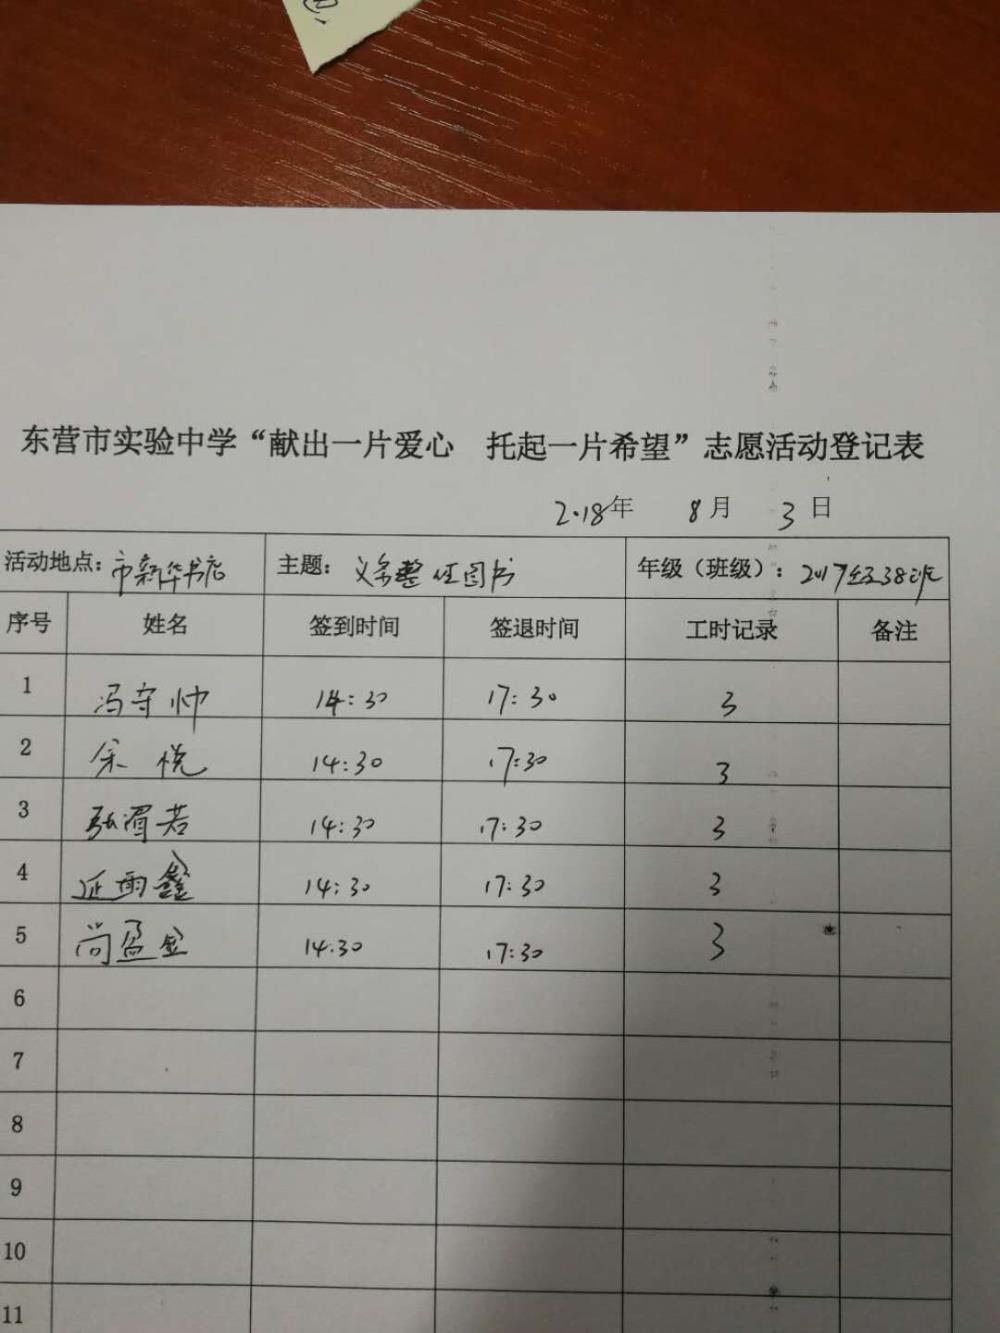 东营市实验中学“献出一片爱心 托起一片希望”志愿活动登记表
2018年 8月 3日
活动地点：市新华书店 主题：义务整理图书 年级（班级）：2017级38班
序号 姓名 签到时间 签退时间 工时记录 备注
1 冯守帅 14:30 17:30 3
2 余悦 14:30 17:30 3
3 张渭若 14:30 17:30 3
4 延雨鑫 14:30 17:30 3
5 尚盈金 14.30 17:30 3
6
7
8
9
10
11